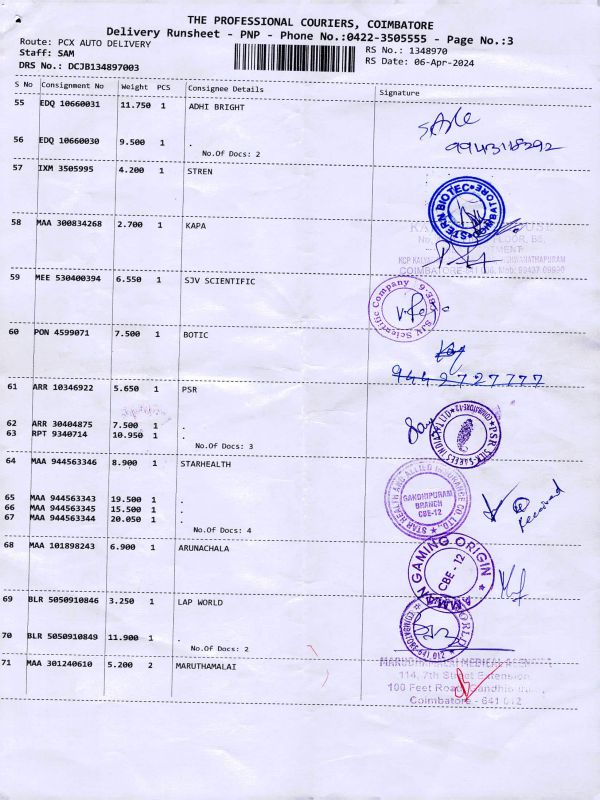 THE PROFESSIONAL COURIERS, COIMBATORE
Delivery Runsheet - PNP - Phone No.:0422-3505555 - Page No.:3
Route: PCX AUTO DELIVERY
RS No.: 1348970
Staff: SAM
RS Date: 06-Apr-2024
DRS No.: DCJB134897003
S No Consignment No Weight PCS Consignee Details Signature
55 EDQ 10660031 11.750 1 ADHI BRIGHT
56 EDQ 10660030 9.500 1 .
No.Of Docs: 2
57 IXM 3505995 4.200 1 STREN
STERN BIOTEC
58 MAA 300834268 2.700 1 KAPA
59 MEE 530400394 6.550 1 SJV SCIENTIFIC
SJV Scientific Company
60 PON 4599071 7.500 1 BOTIC
9442727777
61 ARR 10346922 5.650 1 PSR
62 ARR 30404875 7.500 1 .
63 RPT 9340714 10.950 1 .
No.Of Docs: 3
PSR SILK SAREES INDIA
64 MAA 944563346 8.900 1 STARHEALTH
65 MAA 944563343 19.500 1
66 MAA 944563345 15.500 1
67 MAA 944563344 20.050 1 .
No.Of Docs: 4
STAR HEALTH AND ALLIED INSURANCE CO. LTD.
GANDHIPURAM
BRANCH
CBE-12
Received
68 MAA 101898243 6.900 1 ARUNACHALA
GAMING ORIGIN
CBE - 12
69 BLR 5050910846 3.250 1 LAP WORLD
70 BLR 5050910849 11.900 1 .
No.Of Docs: 2
71 MAA 301240610 5.200 2 MARUTHAMALAI
114, 7th Street Extension
100 Feet Road
Coimbatore - 641 012